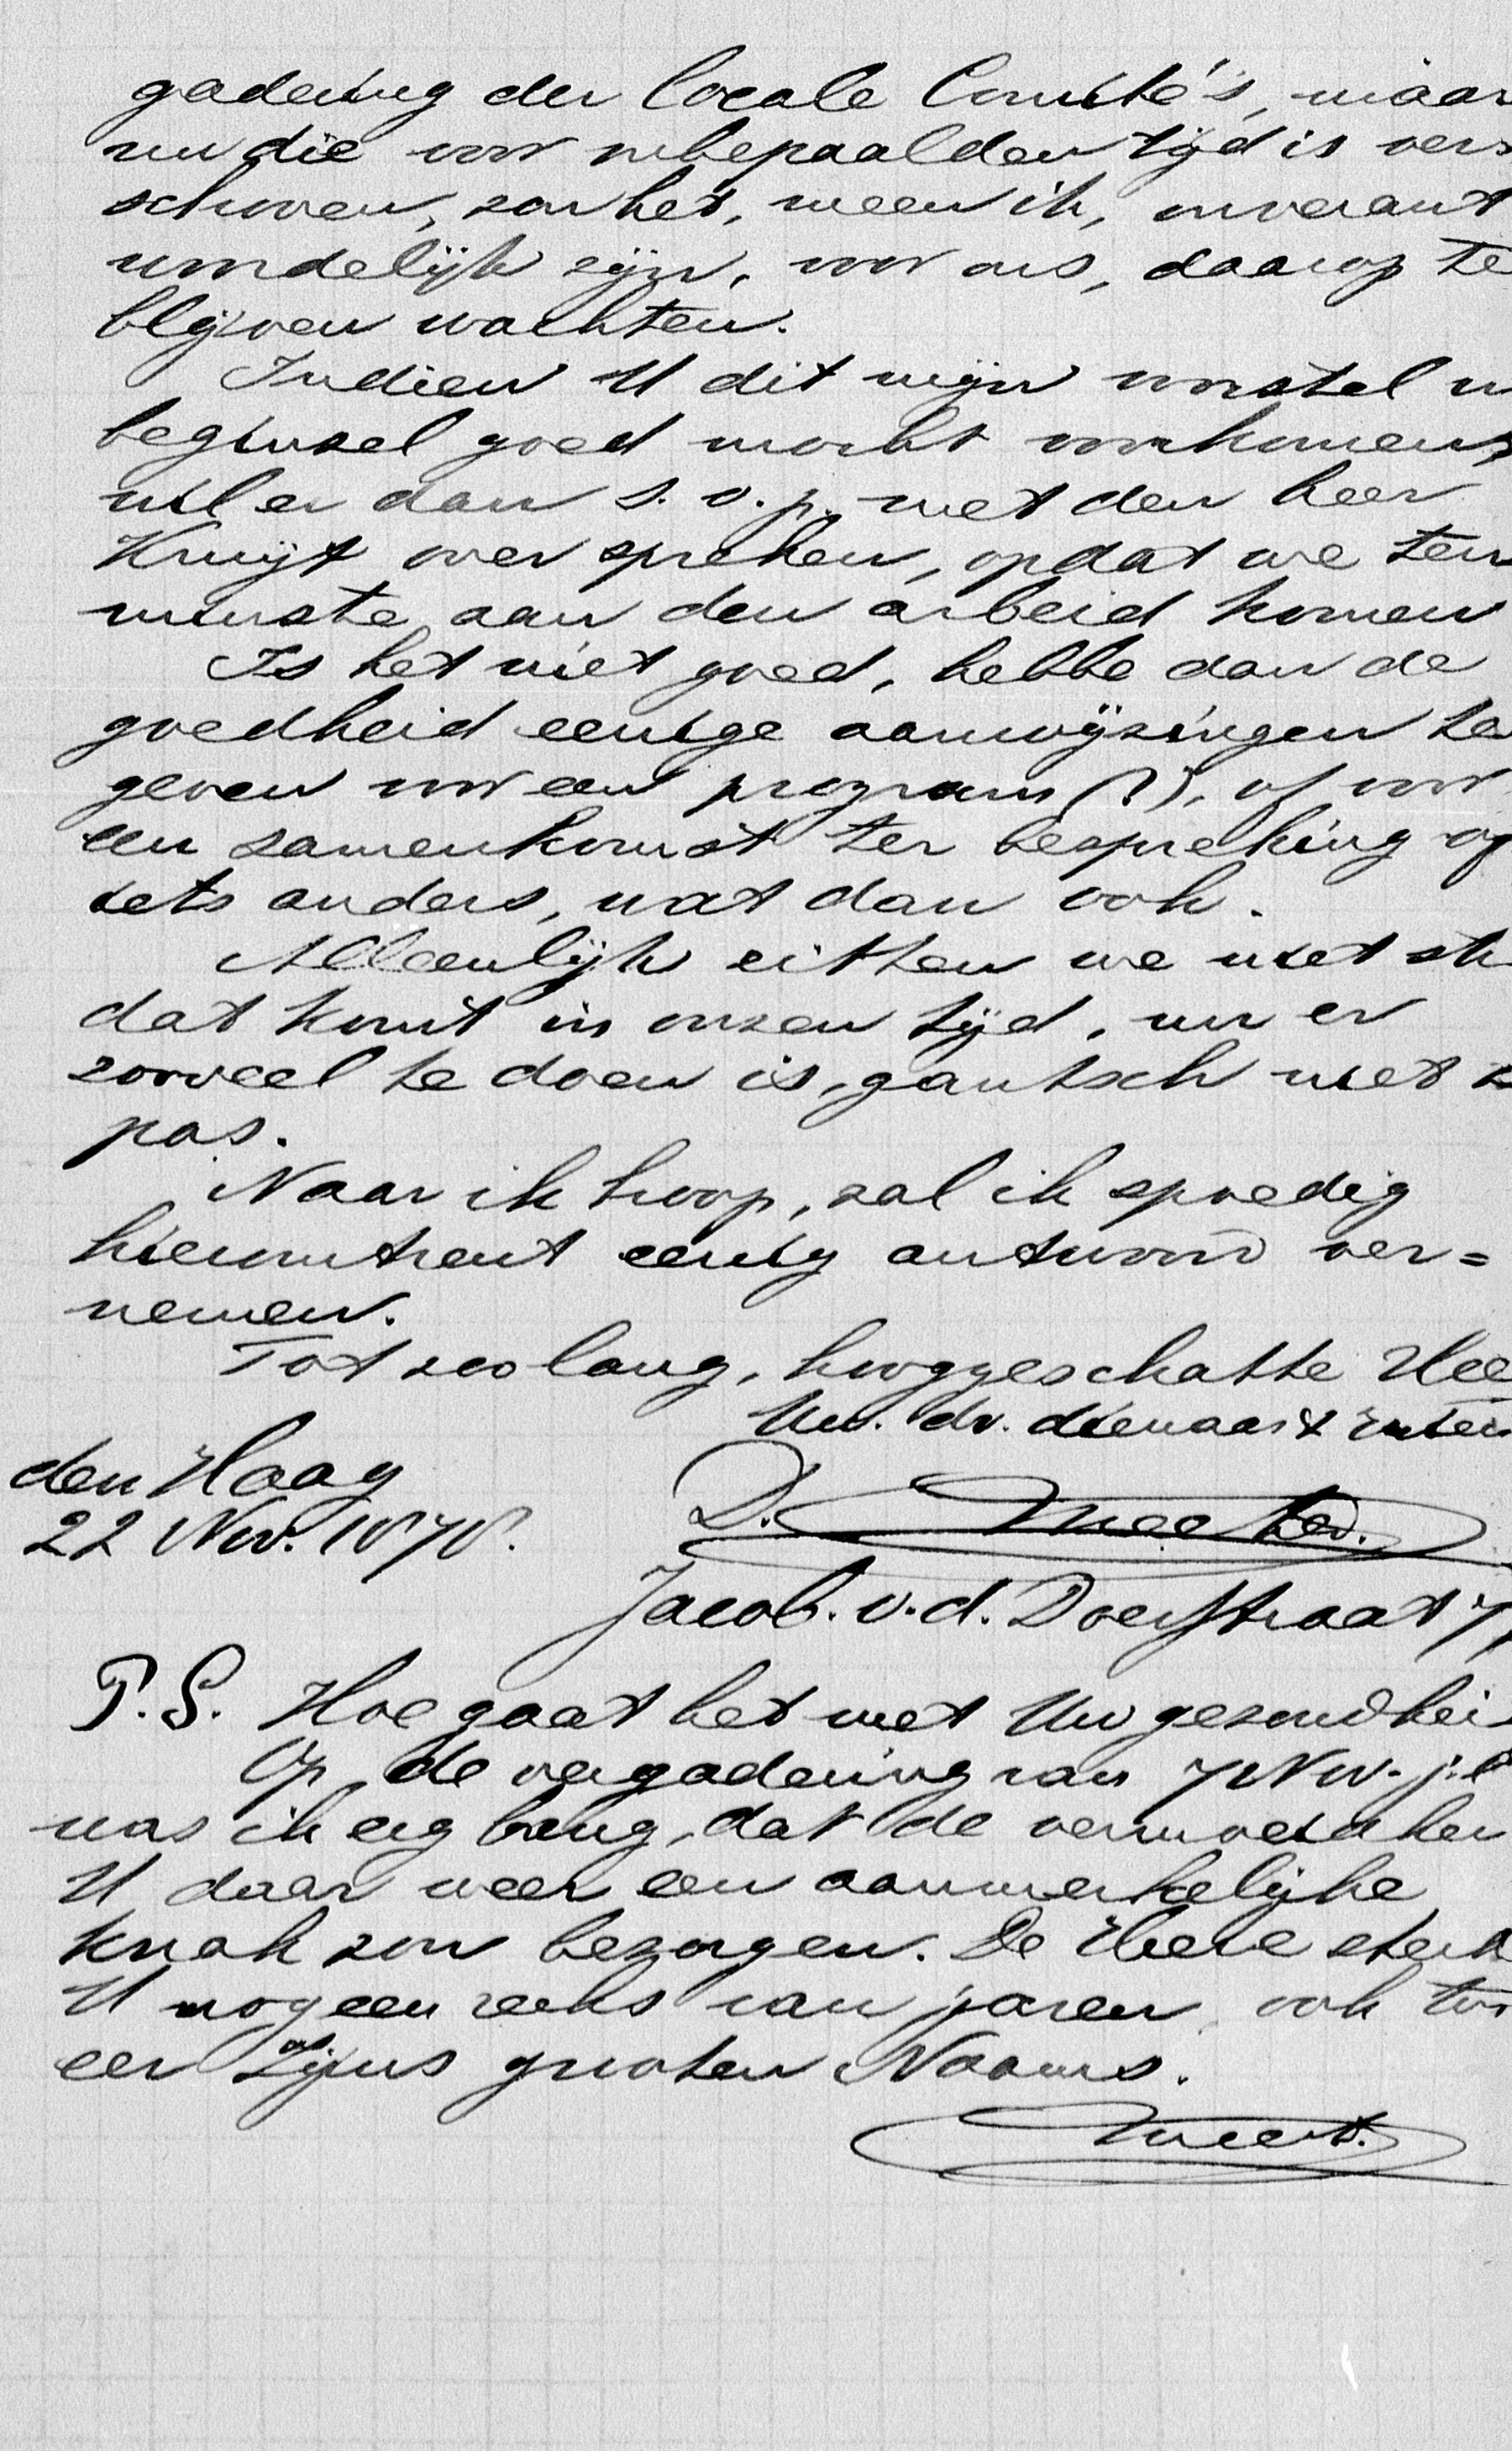 gadering der locale Comité's, maar
nu die voor onbepaalden tijd is ver=
schoven, zou het, meen ik, onverant
woordelijk zijn, voor ons, daarop te
blijven wachten.
Indien U dit mijn voorstel in
beginsel goed mocht voorkomen,
wil er dan s.v.p. met den heer
Kruijt over spreken, opdat we ten
minste aan den arbeid komen
Is het niet goed, hebbe dan de
goedheid eenige aanwijzingen te
geven voor een program (?), of voor
een samenkomst ter bespreking of
iets anders, wat dan ook.
Alleenlijk zitten we niet stil
dat komt in onzen tijd, nu er
zooveel te doen is, gantsch niet te
pas.
Naar ik hoop, zal ik spoedig
hieromtrent eenig antwoord ver=
nemen.
Tot zoolang, hooggeschatte Hee
Uw. dv. dienaar &
den Haag
22 Nov. 1878.
D.
Jacob. v.d. Doesstraat
P.S. Hoe gaat het met Uw gezondhei
Op de vergadering van 7 Nov. j.l.
was ik erg bang, dat de vermoeidhei
U daar weer een aanmerkelijke
knak zou bezorgen. De Heere sterk
U nog een reeks van jaren, ook tot
eer Zijns grooten Naams.
Meest.